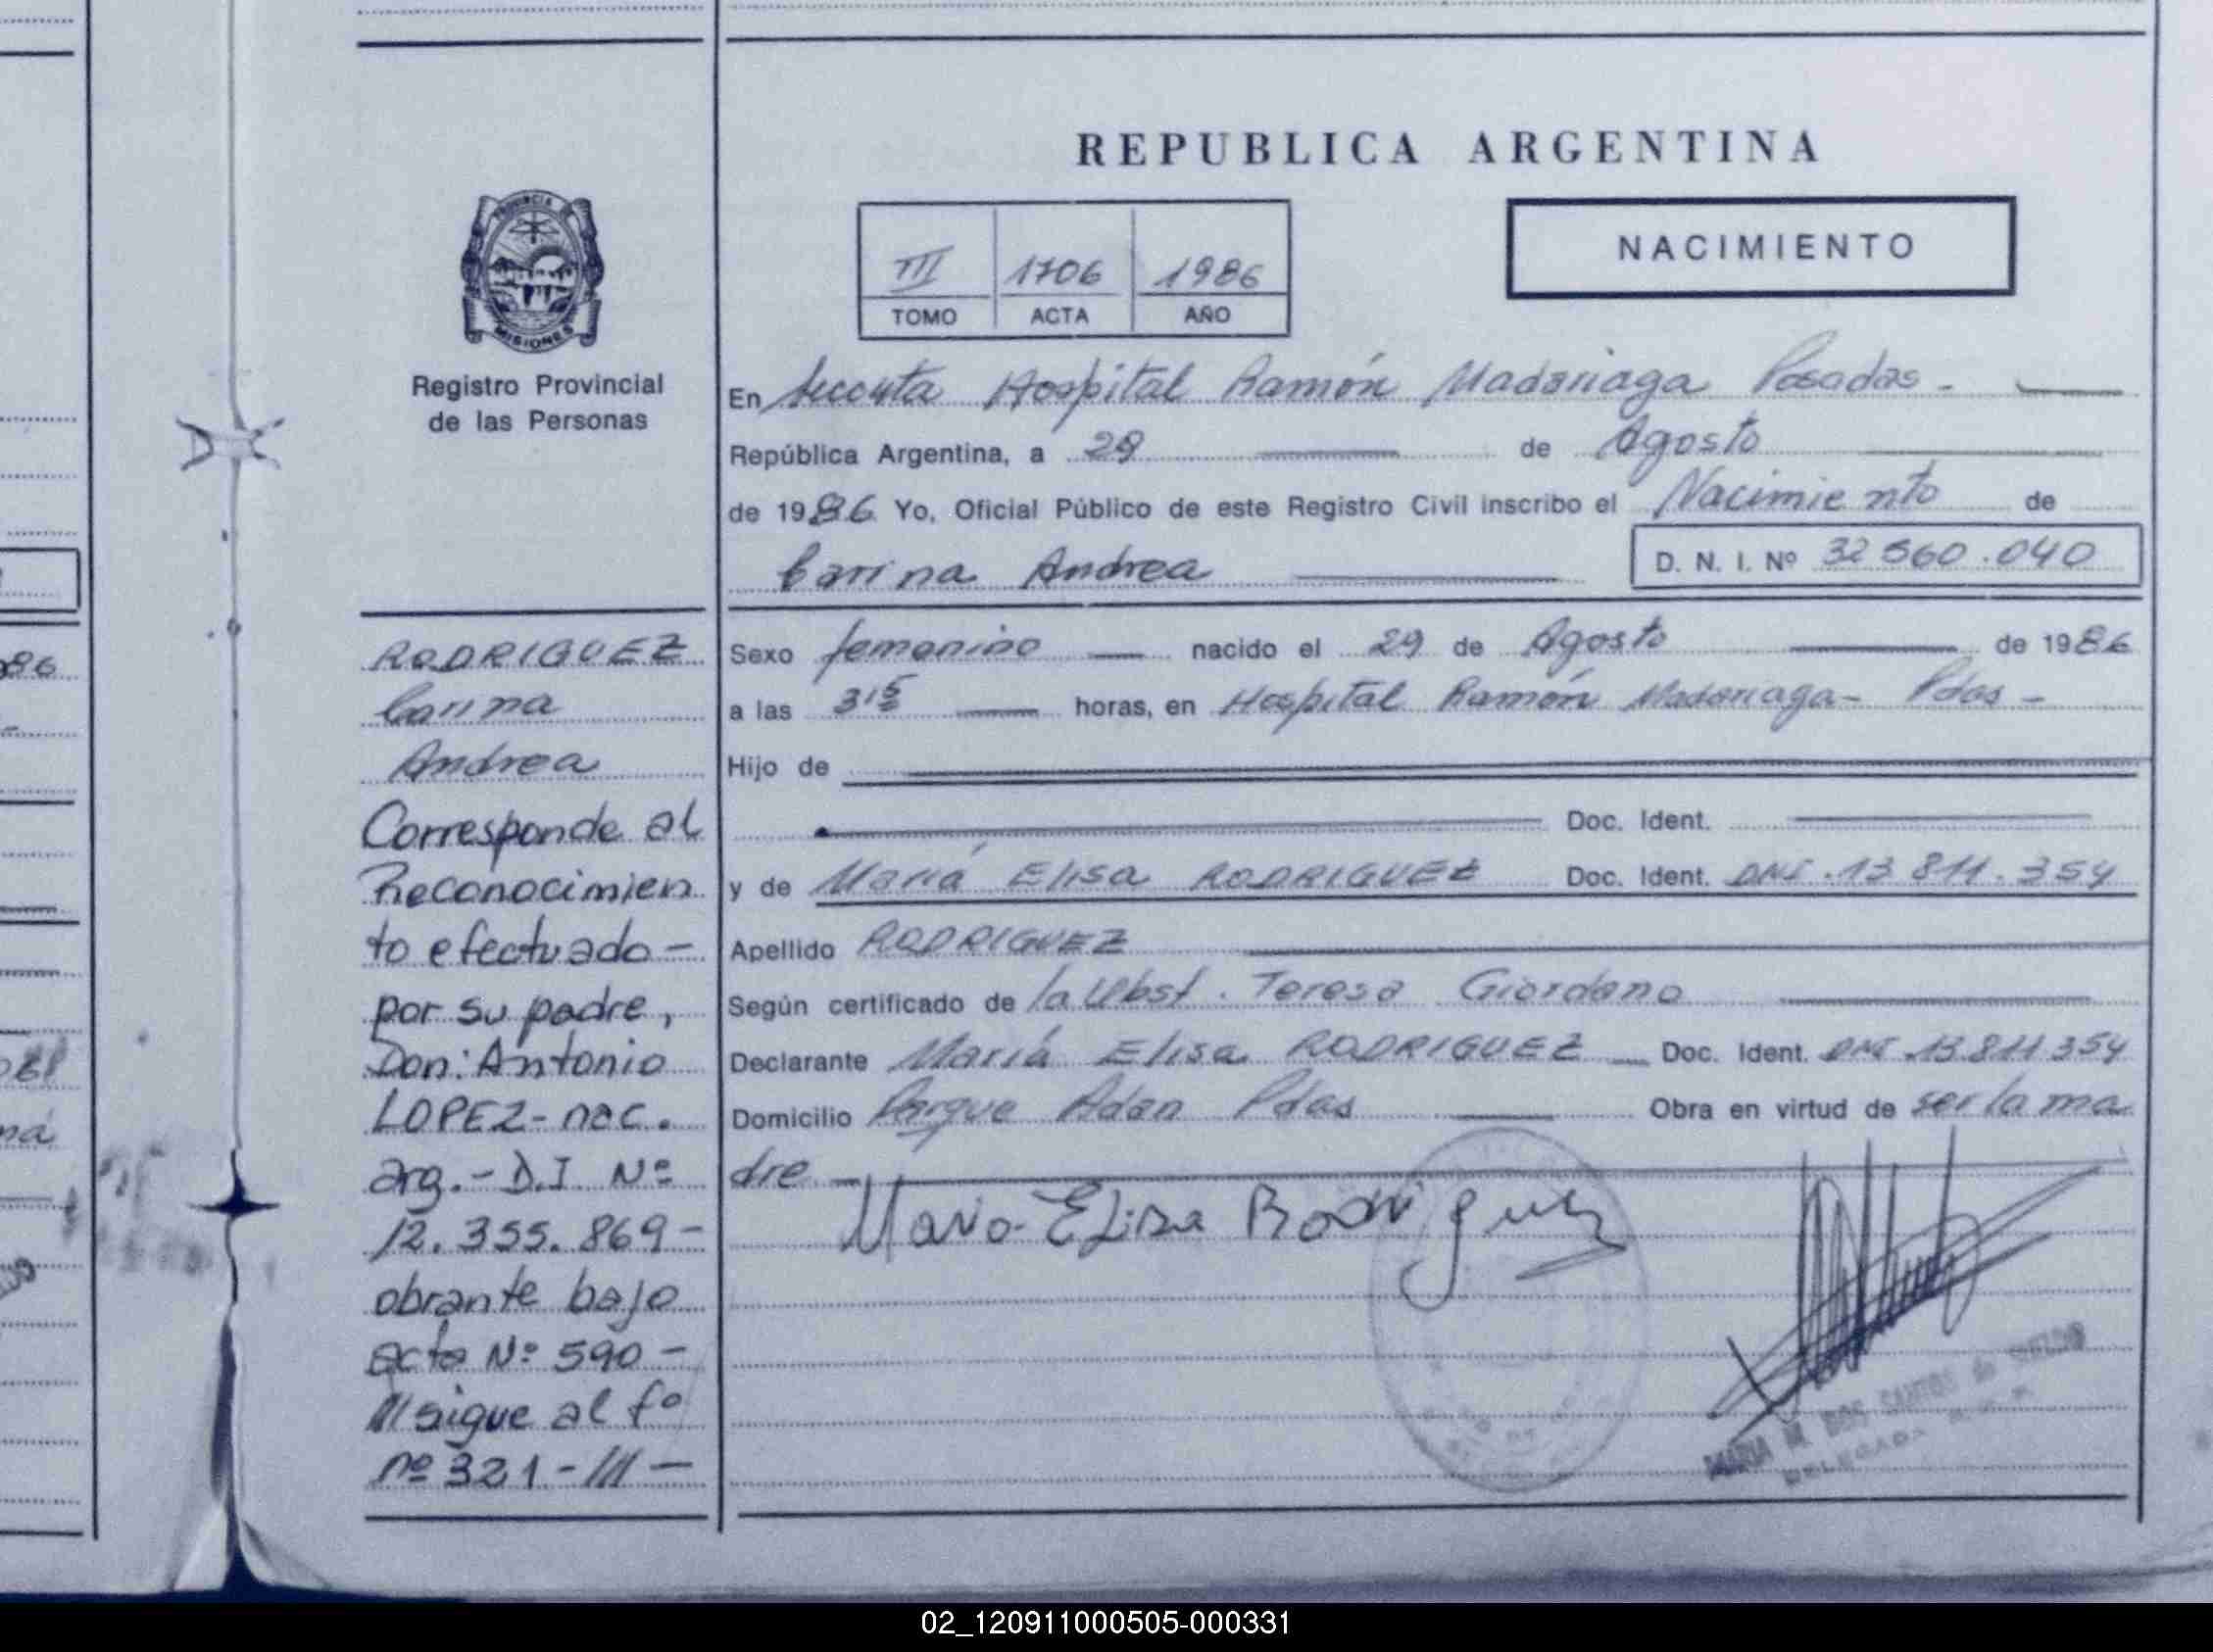 REPUBLICA ARGENTINA
PROVINCIA DE
MISIONES
Registro Provincial
de las Personas
III 1706 1986
TOMO ACTA AÑO
NACIMIENTO
En Hospital Ramón Madariaga Posadas -
República Argentina, a 29 de Agosto
de 1986 Yo, Oficial Público de este Registro Civil inscribo el Nacimiento de
Carina Andrea
D. N. I. Nº 32 560.040
RODRIGUEZ
Carina
Andrea
Corresponde al
Reconocimien
to efectuado -
por su padre,
Don: Antonio
LOPEZ - nac.
arg. - D.I Nº
12.355.869 -
obrante bajo
acta Nº 590 -
/// sigue al fº
nº 321 - /// -
Sexo femenino nacido el 29 de Agosto de 1986
a las 3 15 horas, en Hospital Ramón Madariaga - Pdas -
Hijo de
Doc. Ident.
y de María Elisa RODRIGUEZ Doc. Ident. DNI. 13 811.354
Apellido RODRIGUEZ
Según certificado de la Obst. Teresa Giordano
Declarante María Elisa RODRIGUEZ Doc. Ident. DNI. 13 811 354
Domicilio Parque Adan Pdas Obra en virtud de ser la ma
dre
Maria Elisa Rodriguez
MARIA DOS SANTOS de
DELEGADA
02_120911000505-000331